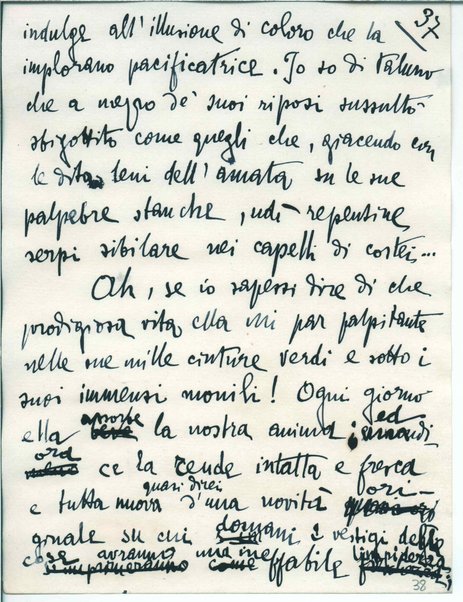 37
indulge all'illusione di coloro che la
implorano pacificatrice. Io so di taluno
che a mezzo de' suoi riposi sussultò
sbigottito come quegli che, giacendo con
le dita leni dell'amata su le sue
palpebre stanche, udì repentine
serpi sibilare nei capelli di costei...
Ah, se io sapessi dire di che
prodigiosa vita ella mi par palpitante
nelle sue mille cinture verdi e sotto i
suoi immensi monili! Ogni giorno
ella assorbe la nostra anima; ed
ora ce la rende intatta e fresca
e tutta nuova quasi direi d'una novità ori-
ginale su cui domani i vestigi delle
cose avranno una ineffabile limpidezza
38